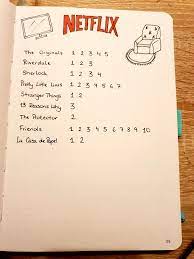 NETFLIX
The Originals 1 2 3 4 5
Riverdale 1 2 3
Sherlock 1 2 3 4
Pretty Little Liars 1 2 3 4 5 6 7
Stranger Things 1 2
13 Reasons Why 3
The Protector 2
Friends 1 2 3 4 5 6 7 8 9 10
La Casa de Papel 1 2